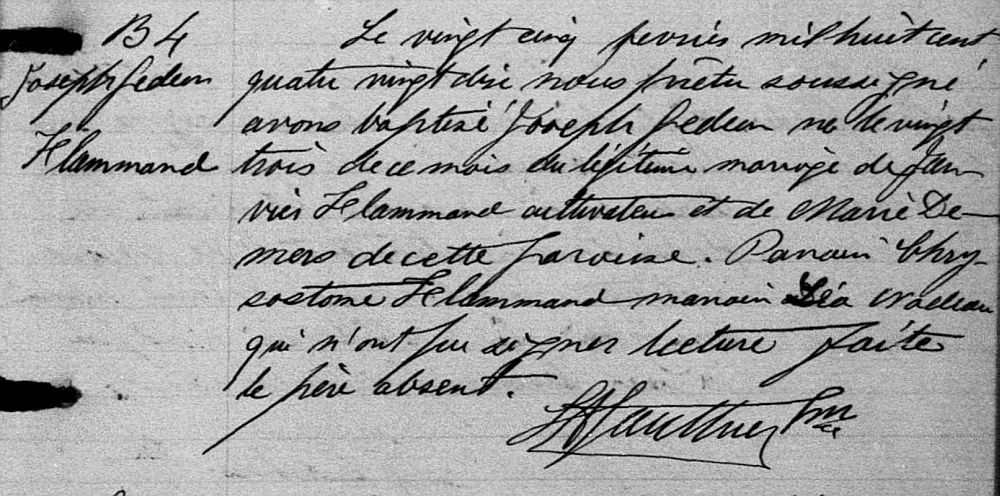 B 4
Joseph Gedeon
Flammand
Le vingt cinq fevrier mil huit cent
quatre vingt dix nous prêtre soussigné
avons baptisé Joseph Gedeon ne le vingt
trois de ce mois du légitime mariage de Jan-
vier Flammand cultivateur et de Marie De-
mers de cette paroisse. Parrain Chry-
sostome Flammand marraine Léa
qui n'ont pu signer lecture faite
le père absent.
Gauthier Ptre